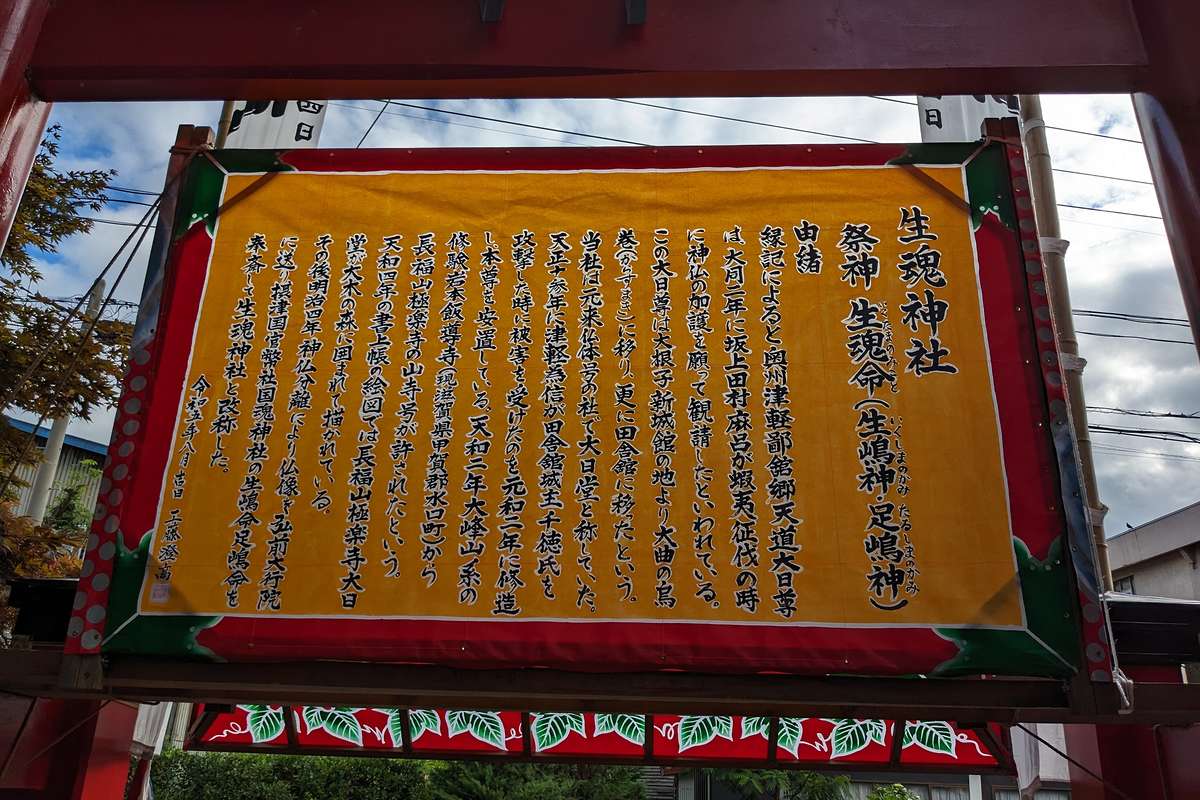 生魂神社
祭神 生魂命(生嶋神足嶋神)
いくたまのみこと いくしまのかみ たるしまのかみ
由緒
縁記によると奥州津軽鄙舘郷天道大日尊
は、大同二年に坂上田村麻呂が蝦夷征伐の時
に神仏の加護を願って観請したといわれている。
この大日尊は大根子新城館の地より大曲の烏
巻(からすまき)に移り、更に田舎館に移たという。
当社は元来仏体号の社で大日堂と称していた。
天正十参年に津軽為信が田舎館城主千徳氏を
攻撃した時に被害を受けたのを元和二年に修造
し本尊を安置している。天和二年大峰山系の
修験岩本飯導寺(現滋賀県甲賀郡水口町)から
長福山極楽寺の山寺号が許されたという。
天和四年の書上帳の絵図では長福山極楽寺大日
堂が大木の森に囲まれて描かれている。
その後明治四年神仏分離により仏像を弘前大行院
に送り摂津国官幣社国魂神社の生嶋命足嶋命を
奉斎して生魂神社と改称した。
年八月吉日
四日
日